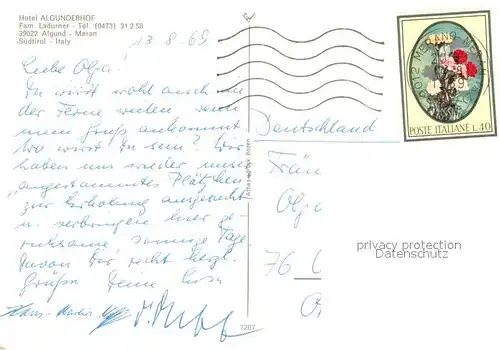 Hotel ALGUNDERHOF
Fam. Ladurner - Tel (0473) 31 2 58
39022 Algund - Meran
Südtirol - Italy
13 8 69
Liebe Olga!
Du wirst wohl auch in
der Ferne weilen, wenn
mein Gruß ankommt.
Wo wirst Du sein? Wir
haben uns wieder unser
"angestammtes Plätzchen"
zur Erholung ausgesucht
u. verbringen hier ge-
ruhsame sonnige Tage.
Davon Dir recht herzl.
Grüße Deine
Hans-Martin
7207
Deutschland
Fräu
Olga
76
POSTE ITALIANE L.40
privacy protection
Datenschutz